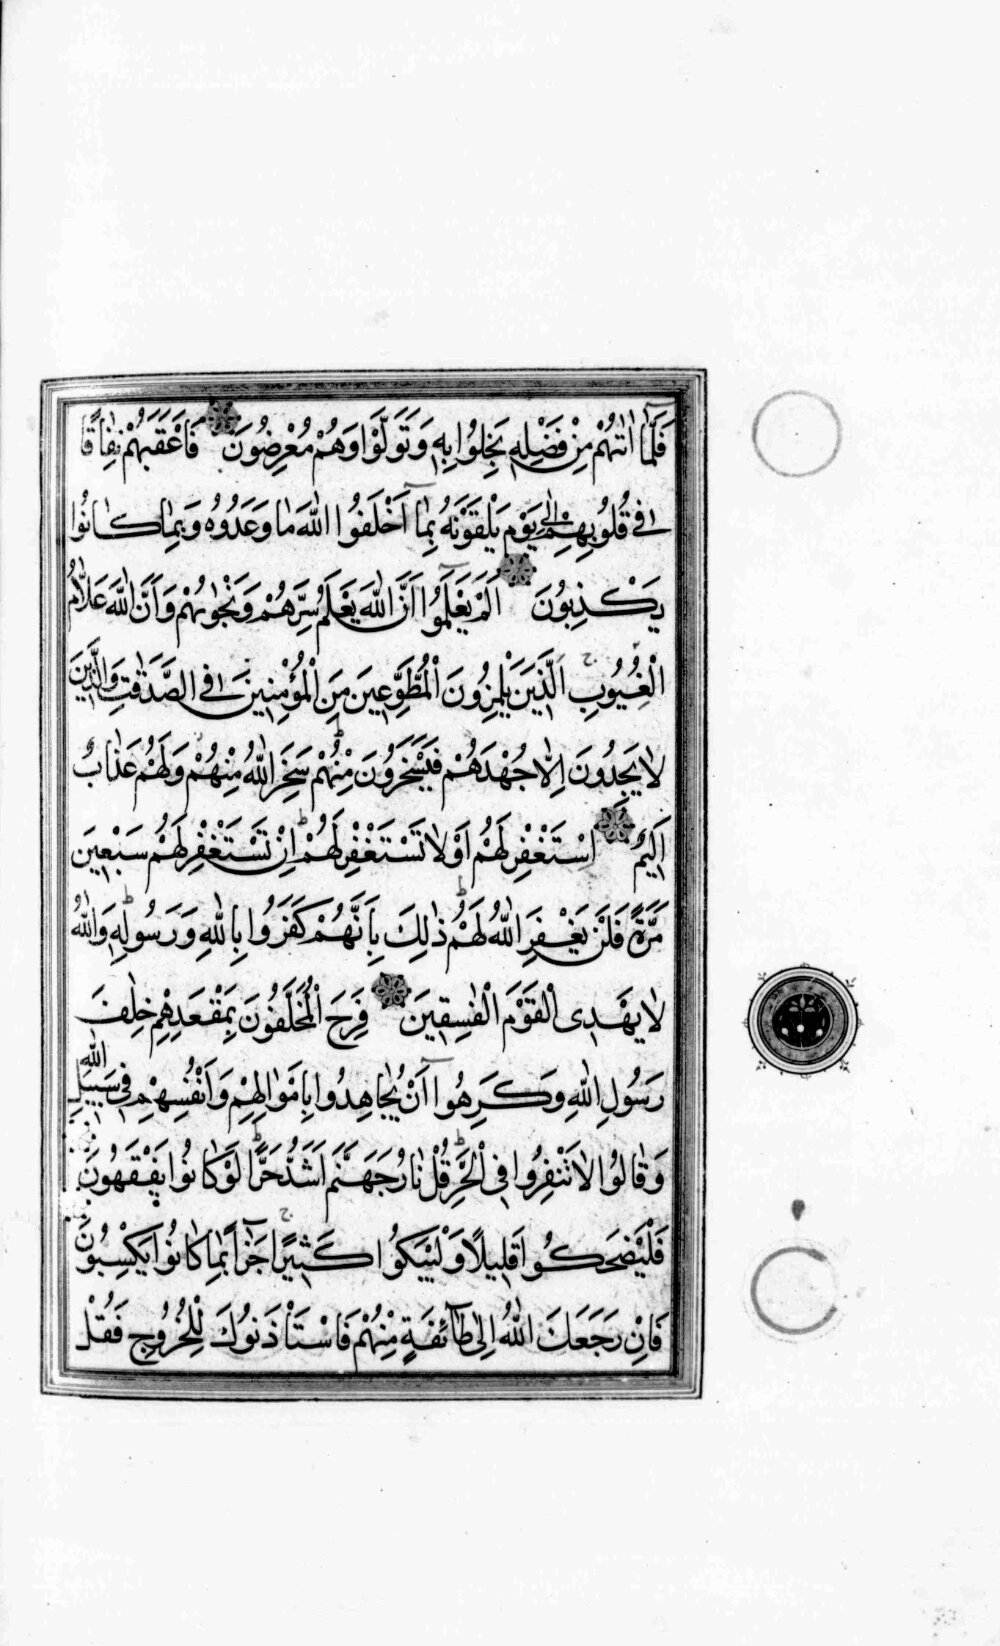 فَلَمَّا اٰتٰىهُمْ مِنْ فَضْلِهٖ بَخِلُوا بِهٖ وَتَوَلَّوْا وَهُمْ مُعْرِضُونَ فَاَعْقَبَهُمْ نِفَاقًا
فٖى قُلُوبِهِمْ اِلٰى يَوْمِ يَلْقَوْنَهُ بِمَٓا اَخْلَفُوا اللّٰهَ مَا وَعَدُوهُ وَبِمَا كَانُوا
يَكْذِبُونَ اَلَمْ يَعْلَمُٓوا اَنَّ اللّٰهَ يَعْلَمُ سِرَّهُمْ وَنَجْوٰىهُمْ وَاَنَّ اللّٰهَ عَلَّامُ
الْغُيُوبِ اَلَّذٖينَ يَلْمِزُونَ الْمُطَّوِّعٖينَ مِنَ الْمُؤْمِنٖينَ فِى الصَّدَقٰتِ وَالَّذٖينَ
لَا يَجِدُونَ اِلَّا جُهْدَهُمْ فَيَسْخَرُونَ مِنْهُمْ سَخِرَ اللّٰهُ مِنْهُمْ وَلَهُمْ عَذَابٌ
اَلٖيمٌ اِسْتَغْفِرْ لَهُمْ اَوْ لَا تَسْتَغْفِرْ لَهُمْ اِنْ تَسْتَغْفِرْ لَهُمْ سَبْعٖينَ
مَرَّةً فَلَنْ يَغْفِرَ اللّٰهُ لَهُمْ ذٰلِكَ بِاَنَّهُمْ كَفَرُوا بِاللّٰهِ وَرَسُولِهٖ وَاللّٰهُ
لَا يَهْدِى الْقَوْمَ الْفٰسِقٖينَ فَرِحَ الْمُخَلَّفُونَ بِمَقْعَدِهِمْ خِلٰفَ
رَسُولِ اللّٰهِ وَكَرِهُٓوا اَنْ يُجَاهِدُوا بِاَمْوَالِهِمْ وَاَنْفُسِهِمْ فٖى سَبٖيلِ اللّٰهِ
وَقَالُوا لَا تَنْفِرُوا فِى الْحَرِّ قُلْ نَارُ جَهَنَّمَ اَشَدُّ حَرًّا لَوْ كَانُوا يَفْقَهُونَ
فَلْيَضْحَكُوا قَلٖيلًا وَلْيَبْكُوا كَثٖيرًا جَزَٓاءً بِمَا كَانُوا يَكْسِبُونَ
فَاِنْ رَجَعَكَ اللّٰهُ اِلٰى طَٓائِفَةٍ مِنْهُمْ فَاسْتَاْذَنُوكَ لِلْخُرُوجِ فَقُلْ